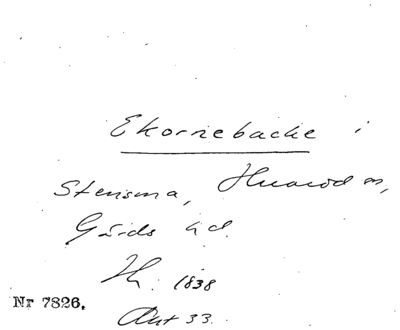 Ekornebacke i
Stensma, Huarod sn,
Gärds hd.
1838
Nr 7826.
Akt 33.